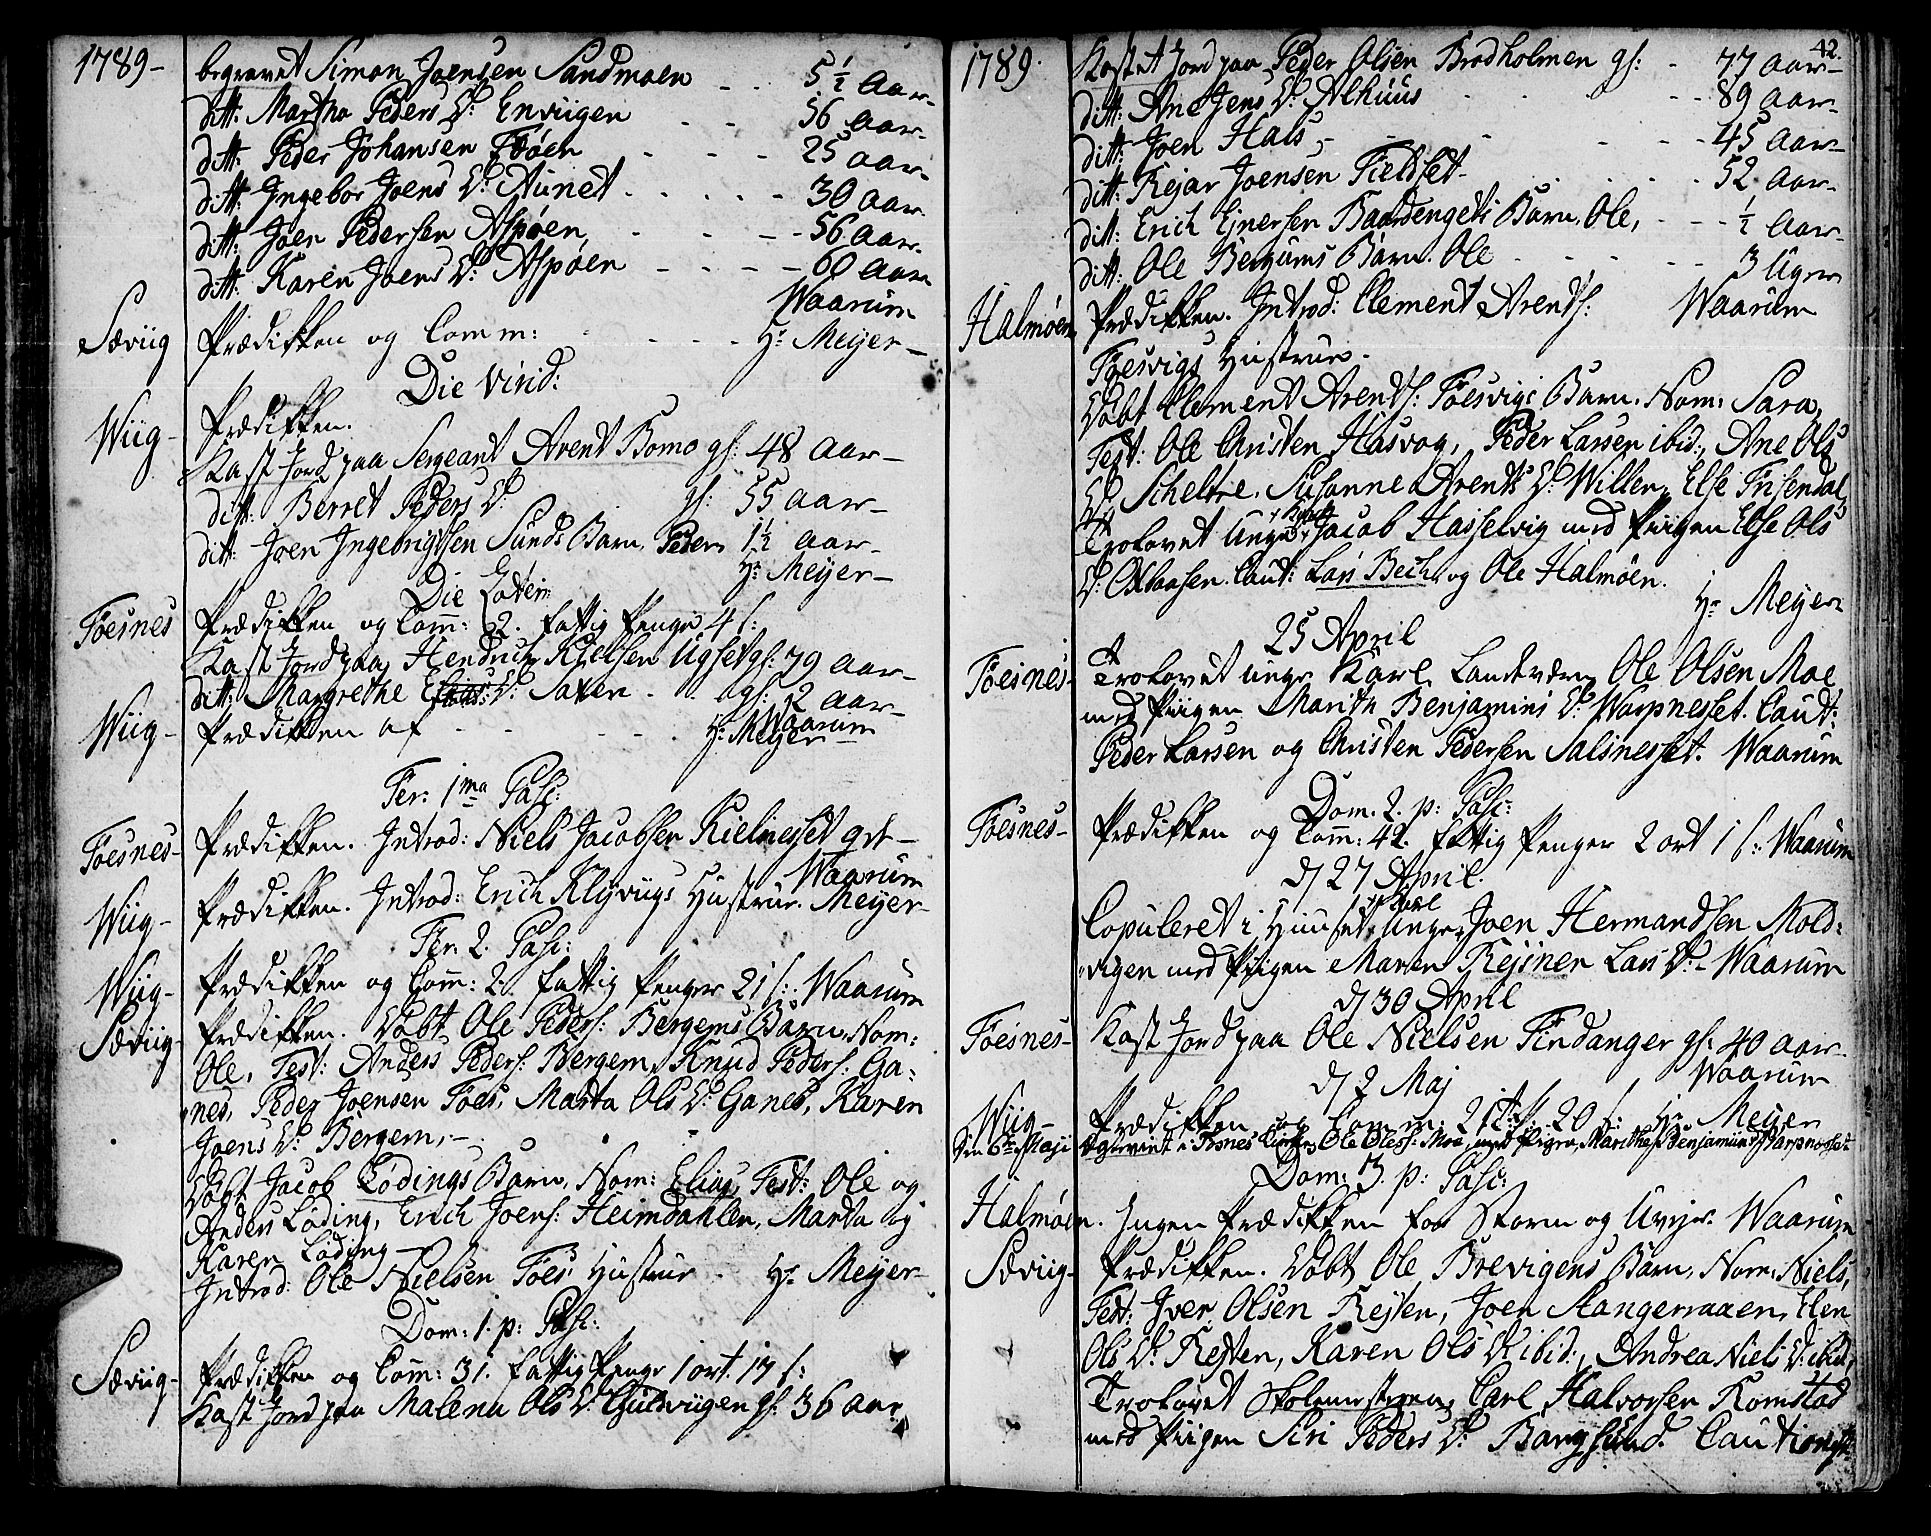 1789-
begravet Simon Joensen Sandmoen - - 5½ Aar-
ditt: Martha Peders D: Enviigen - - 56 Aar-
ditt: Peder Johansen Føöen - - - 25 Aar-
ditt: Ingebor Joens D: Aunet - - - - 30 Aar.
ditt: Joen Pedersen Aspøen, - - - - 56 Aar.
ditt: Karen Joens D: Aspøen - - - - 60 Aar
Waarum
Sæviig Prædikken og Comm: - - - Hr Meyer-
Die Virid:
Wiig- Prædikken.
Kast Jord paa Sergeant Arent Bomo gl: 48 Aar-
ditt: Berret Peders D: gl: 55 Aar-
ditt: Joen Ingebrigtsen Sunds Barn, Peder 1½ Aar-
Hr Meyer-
Die Eodem
Foesnes Prædikken og Com: 52. fattig Penge 4 s:
Kast Jord paa Hendrich Kielsen Ugset gl: 79 Aar-
ditt: Margrethe D: Saxen - gl: 2 Aar-
Waarum
Wiig- Prædikken af - - - - Hr Meyer-
Fer: 1ma Pasc:
Foesnes- Prædikken. Introd: Niels Jacobsen Kielnesset qvl-
Waarum
Wiig- Prædikken. Introd: Erich Klÿviigs Hustrue. Meyer-
Fer. 2. Pasc:
Wiig- Prædikken og Com: 2. fattig Penger 21 s: Waarum
Sæviig- Prædikken. Døbt Ole Peders: Bergems Barn, Nom:
Ole, Test: Anders Peders: Bergem, Knud Peders: Ga:
nes, Peder Joensen Foes, Marta Ols D: Ganes, Karen
Joens D: Bergem,-
Døbt Jacob Lødings Barn, Nom: Elias, Test: Ole og
Anders Løding, Erich Joens: Heimdahlen, Marta og
Karen Løding-
Introd: Ole Nielsen Foes Hustrue. Hr Meyer-
Dom: 1. p: Pasc:
Sæviig- Prædikken og Com: 31. fattig Penge 1 ort. 17 s:
Kast Jord paa Malena Ols D: Gulviigen gl: 36 Aar
42.
1789.
Kastet Jord paa Peder Olsen Brodholmen gl: - 77 Aar-
ditt: Ane Jens D: Alhuus - - - 89 Aar-
ditt: Joen Hals, - - - - 45 Aar-
ditt: Rejar Joensen Fieldset- - - - 52 Aar-
ditt: Erich Ejnersen Baardengets Barn, Ole, - - ½ Aar-
ditt: Ole Bergums Barn Ole - - - 3 Uger
Halmøen Prædikken. Introd: Clement Arents: Waarum
Foesvigs Hustrue.
Døbt Clement Arents: Foesvigs Barn. Nom: Sara,
Test: Ole Christen Hasvog, Peder Larsen ibid:, Ane Ols
D: Scheltre, Susanne Arents D: Willen, Else Frisendal,
Trolovet Unge Karl Jacob Hasselvig med Piigen Else Ols
D: Oxlaasen. Caut: Lars Bech og Ole Halmøen.
Hr Meyer
25 April
Foesnes- Trolovet unge Karl, Landværn Ole Olsen Moe
med Piigen Marith Benjamins D: Warpnesset. Caut:
Peder Larsen og Christen Pedersen Salsnesset. Waarum
Dom. 2. p: Pasc:
Foesnes- Prædikken og Com: 42. fattig Penger 2 ort 1 s: Waarum
d 27 April.
Copuleret i Huuset Unge Karl Joen Hermandsen Mold:
vigen med Piigen Maren Rejsner Lars D:- Waarum
d 30 April
Foesnes- Kast Jord paa Ole Nielsen Findanger gl: 40 Aar.
Waarum
d 2 Maj
Wiig- Prædikken og Comm: 21 20 s: Hr Meyer
Den 6te Maji Egteviet i Fosnes Kirke, Ole Oles: Moe, med Pigen, Marithe Benjamins Warpnesset
Dom: 3. p: Pasc:
Halmøen. Ingen Prædikken for Storm og Uvejr. Waarum
Sæviig- Prædikken. Døbt Ole Brevigens Barn, Nom: Niels,
Test: Iver Olsen Rejten, Joen Stangerraaen, Elen
Ols D: Rejten, Karen Ols D: ibid:, Andrea Niels D: ibid,
Trolovet Skolemesteren, Carl Halvorsen Romstad
med Piigen Siri Peders D: Bangsund. Cautionist